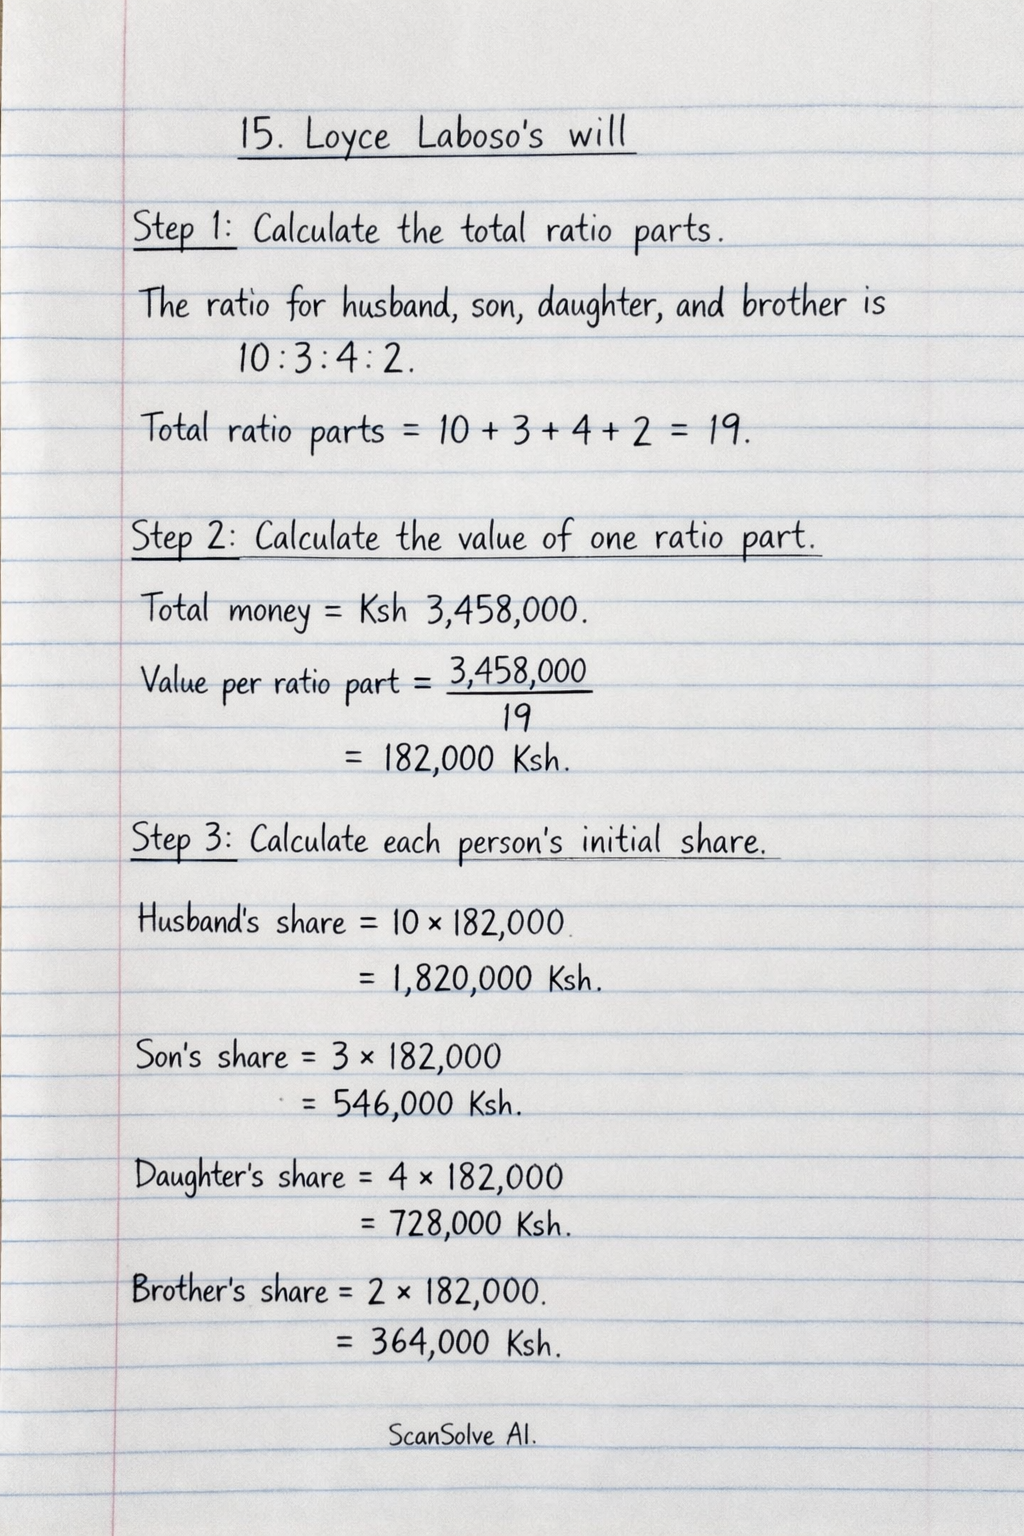 15. Loyce Laboso's will
Step 1: Calculate the total ratio parts.
The ratio for husband, son, daughter, and brother is
10:3:4:2.
Total ratio parts = 10 + 3 + 4 + 2 = 19.
Step 2: Calculate the value of one ratio part.
Total money = Ksh 3,458,000.
Value per ratio part = 3,458,000
19
= 182,000 Ksh.
Step 3: Calculate each person's initial share.
Husband's share = 10 × 182,000.
= 1,820,000 Ksh.
Son's share = 3 × 182,000
= 546,000 Ksh.
Daughter's share = 4 × 182,000
= 728,000 Ksh.
Brother's share = 2 × 182,000.
= 364,000 Ksh.
ScanSolve AI.